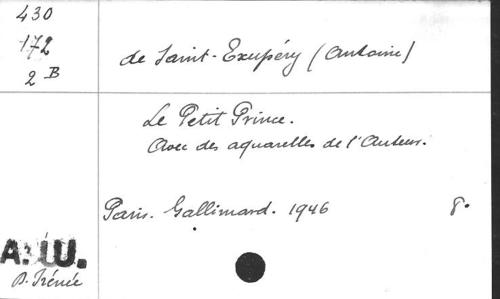 430
172
2 B
de Saint-Exupéry (Antoine)
Le Petit Prince.
Avec des aquarelles de l'Auteur.
Paris. Gallimard. 1946 8°.
A. IU.
D. Irénée